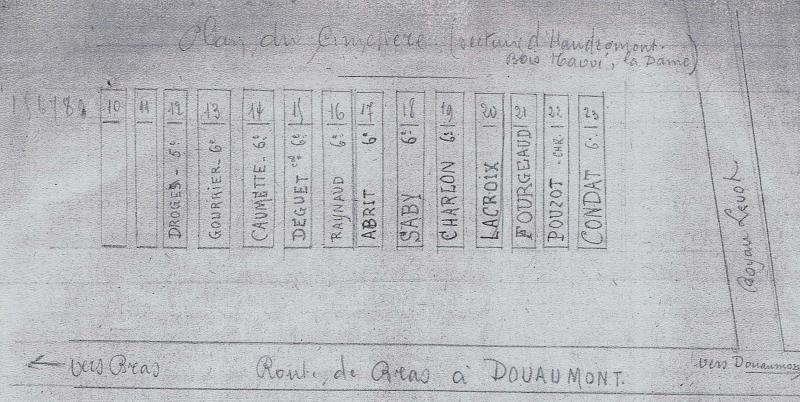 Plan du Cimetière. (secteur d'Haudromont.
Bois Nawé, la Dame)
10
11
12 DROGES - 5e
13 GOURRIER - 6e
14 CAUMETTE - 6e
15 DEGUET cal 6e
16 RAYNAUD 6e
17 ABRIT 6e
18 SABY 6e
19 CHARLON 6e
20 LACROIX
21 FOURGEAUD
22 POUZOT - CHR.
23 CONDAT 6e
Boyau
← vers Bras
Route de Bras à DOUAUMONT.
vers Douaumont